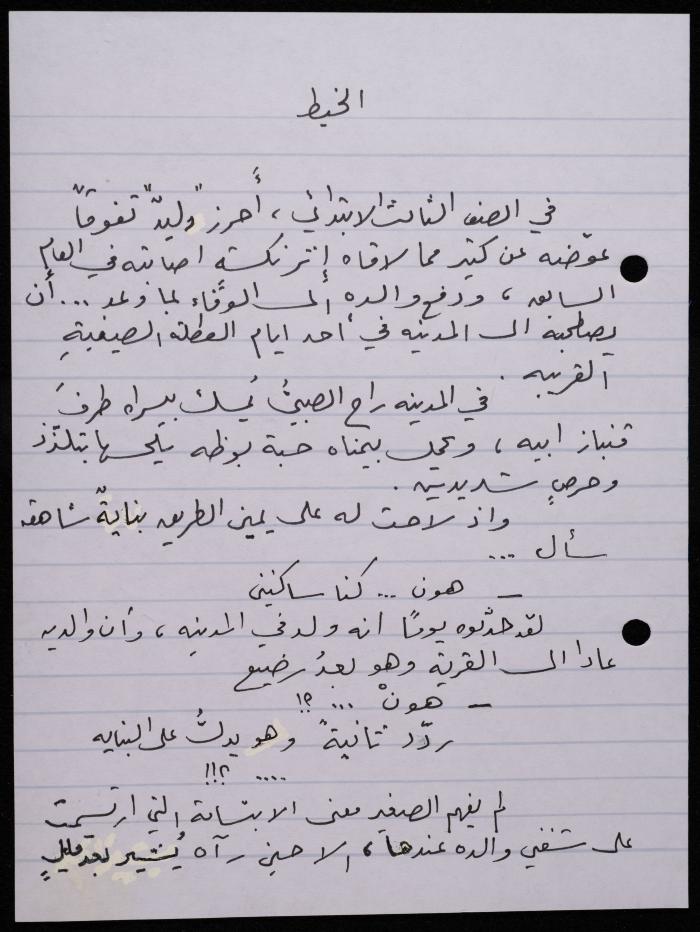 الخيط
في الصف الثالث الابتدائي، أَحرز "وليدٌ" تفوقاً
عوّضه عن كثير مما لاقاه إثر نكسته اصابته في العام
السابق، ودفع والده إلى الوفاء بما وعد ... أن
يصطحبه الى المدينه في أحد ايام العطلة الصيفيةِ
القريبه.
في المدينه راح الصبيُّ يُمسك بيسراه طرفَ
قنباز ابيه، ويحمل بيمناه حبة بوظه يلحسها بتلذّذ
وحرصٍ شديدين.
واذ لاحت له على يمين الطريق بنايةٌ شاهقه
سأل ...
– هون ... كنا ساكنين
لقد حدّثوه يومًا انه ولد في المدينه، وأن والديه
عادا الى القرية وهو بعدُ رضيع
– هونْ ... ؟!
ردّد ثانيةً وهو يدلُّ على البنايه
.... ؟!!
لم يفهم الصغير معنى الابتسامة التي ارتسمت
على شفتي والده عندها، الا حين رآه يُشير بعد قليلٍ